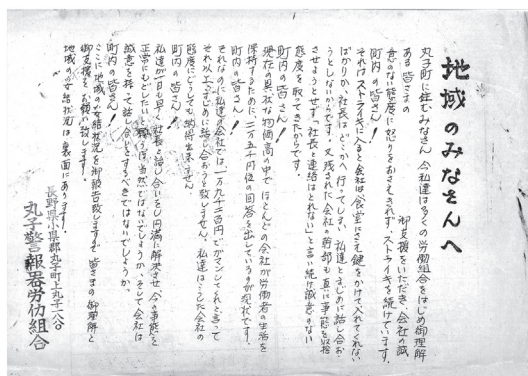 地域のみなさんへ
丸子町に住むみなさん 今私達は多くの労働組合をはじめ御理解
ある皆さまの 御支援をいただき、会社の誠
意のない態度に怒りをおさえきれず、ストライキを続けています。
町内の皆さん!
それはストライキに入ると会社は食堂にさえ鍵をかけて入れてくれない
ばかりか、社長はどこかへ行ってしまい私達とまじめに話し合お
うとしないからです。又残された会社の幹部も真に事態を収拾
させようとせず、"社長と連絡はとれない"と言い続け誠意のない
態度を取ってきたからです。
町内の皆さん!
現在の異状な物価高の中でほとんどの会社が労働者の生活を
保持するために二万五千円位の回答を出しているのが現状です。
町内の皆さん!
それなのに私達の会社では一万九千二百円でガマンしてくれと言って
それ以上まじめに話し合おうと致しません。私達はこうした会社の
態度にどうしても納得出来ません。
町内の皆さん!
私達が一日も早く社長と話し合いをし円満に解決させ今の事態を
正常にもどしたいと願うのは当然ではないでしょうか、そして会社は
誠意を持って話し合いをすべきではないでしょうか。
町内の皆さん!
ここに地域の女結状況を御報告致しますので皆さまの御理解と
御支援をお願い致します。
地域の女結状況は裏面にあります。
長野県小県郡丸子町上丸子一八〇
丸子警報器労仂組合